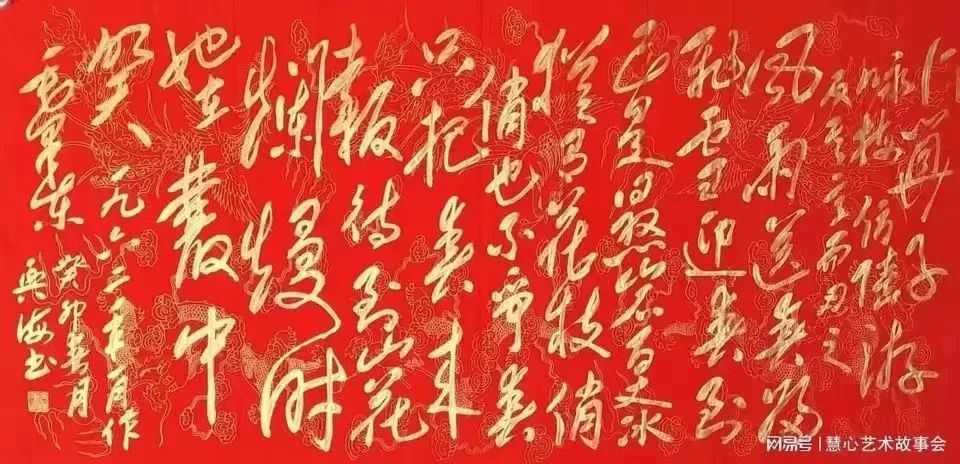 卜算子
咏梅仿陆游
反其意而用之
风雨送春归
飞雪迎春到
已是悬崖百丈冰
犹有花枝俏
俏也不争春
只把春来
报待到山花
烂漫时
她在丛中
笑一九六年月作
毛泽东
癸卯春月
兴海书
网易号 | 慧心艺术故事会